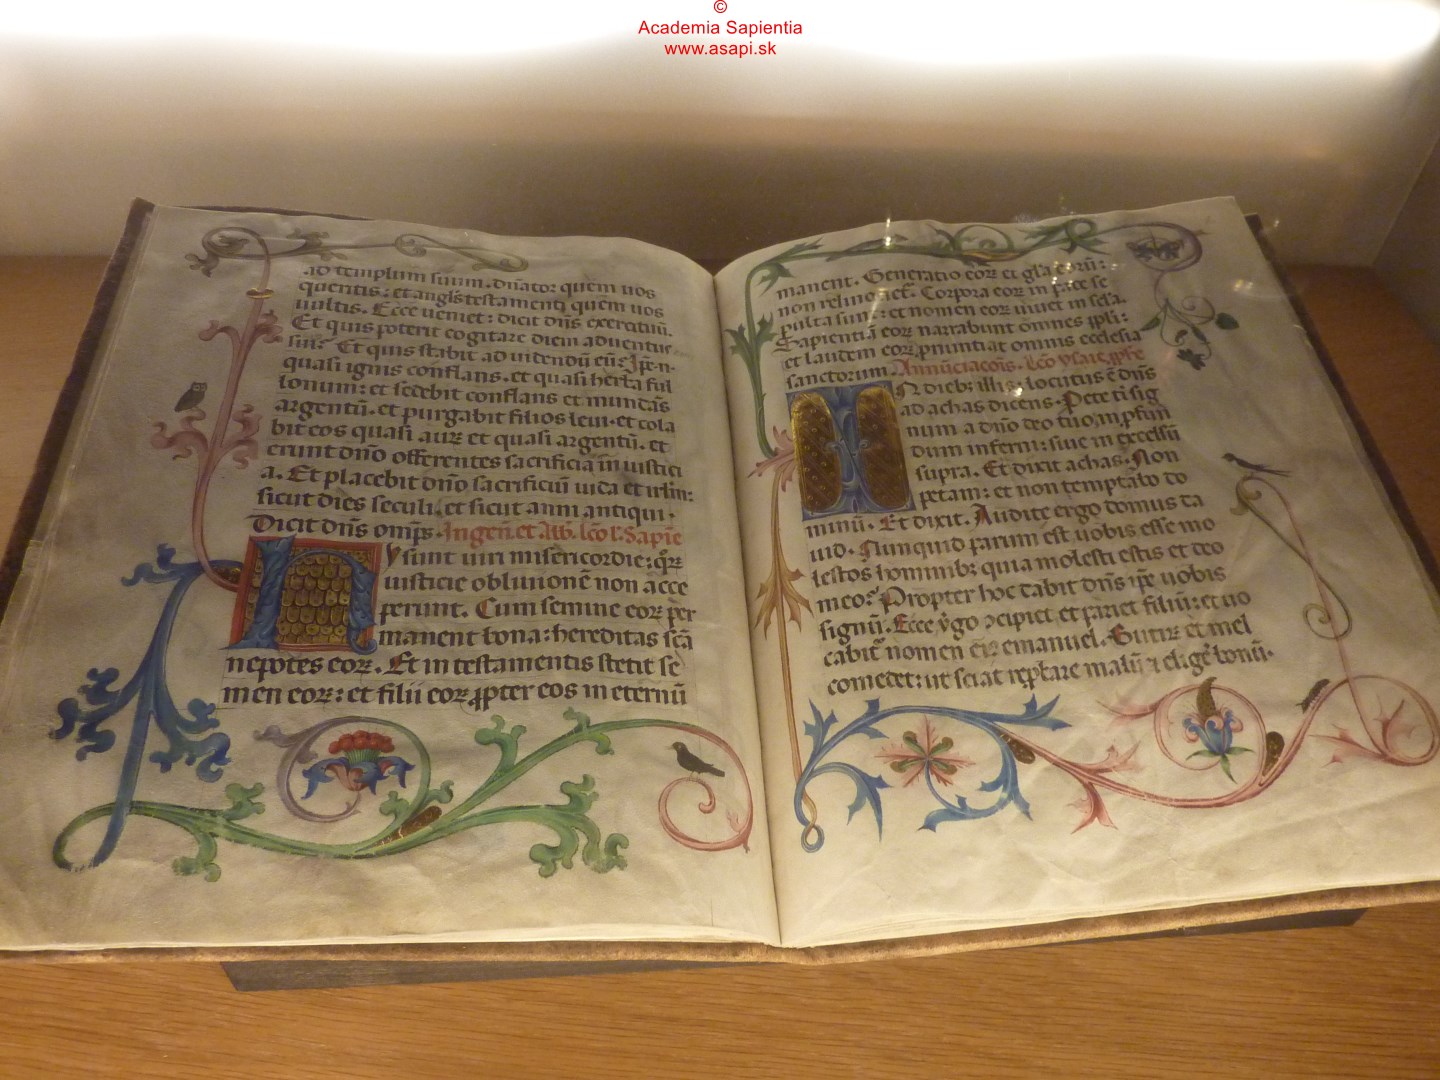 ©
Academia Sapientia
www.asapi.sk
ad templum suum. dñator quem uos
queritis: et angl's testamenti quem uos
uultis. Ecce ueniet: dicit dñs exercituũ.
Et quis poterit cogitare diem aduentus
sui? Et quis stabit ad uidendũ eũ?
quasi ignis conflans. et quasi herba ful
lonum: et sedebit conflans et mundãs
argentũ. et purgabit filios leui. et cola
bit eos quasi aurꝫ et quasi argentũ. et
erunt dño offerentes sacrificia in iustici
a. Et placebit dño sacrificiũ iuda et irl'm:
sicut dies seculi. et sicut anni antiqui.
Dicit dñs omp̃s. In gen̄. et Ab. lc̄o l. Sapie
Hy sunt uiri misericordie: qꝝ
iusticie obliuionẽ non acce
perunt. Cum semine eoꝝ per
manent bona: hereditas scã
nepotes eoꝝ. Et in testamentis stetit se
men eoꝝ: et filii eoꝝ ꝓpter eos in eternũ
manent. Generatio eoꝝ et gl'a eorũ:
non relinq̃et̃. Corpora eoꝝ in pace se
pulta sunt: et nomen eoꝝ uiuet in sc̃la.
Sapientiã eoꝝ narrabunt omnes ppl'i:
et laudem eoꝝ ꝓnuntiat omnis ecclesia
sanctorum. Annũciacõis. Lc̃o ysaie ꝓphe
In diebꝫ illis: locutus ẽ dñs
ad achas dicens. Pete tᷝ sig
num a dño deo tuo, in ꝓfun
dum inferni: siue in excelsũ
supra. Et dixit achas. Non
petam: et non temptabo do
minũ. Et dixit. Audite ergo domus da
uid. Nunquid parum est uobis esse mo
lestos hominibꝫ quia molesti estis et deo
meo? Propter hoc dabit dñs ip̃e uobis
signũ. Ecce ỹgo ↄcipiet et pariet filiũ: et uo
cabit̃ nomen ei᷒ emanuel. Butirꝫ et mel
comedet: ut sciat rep̃bare malũ ⁊ elig̃e bonũ.